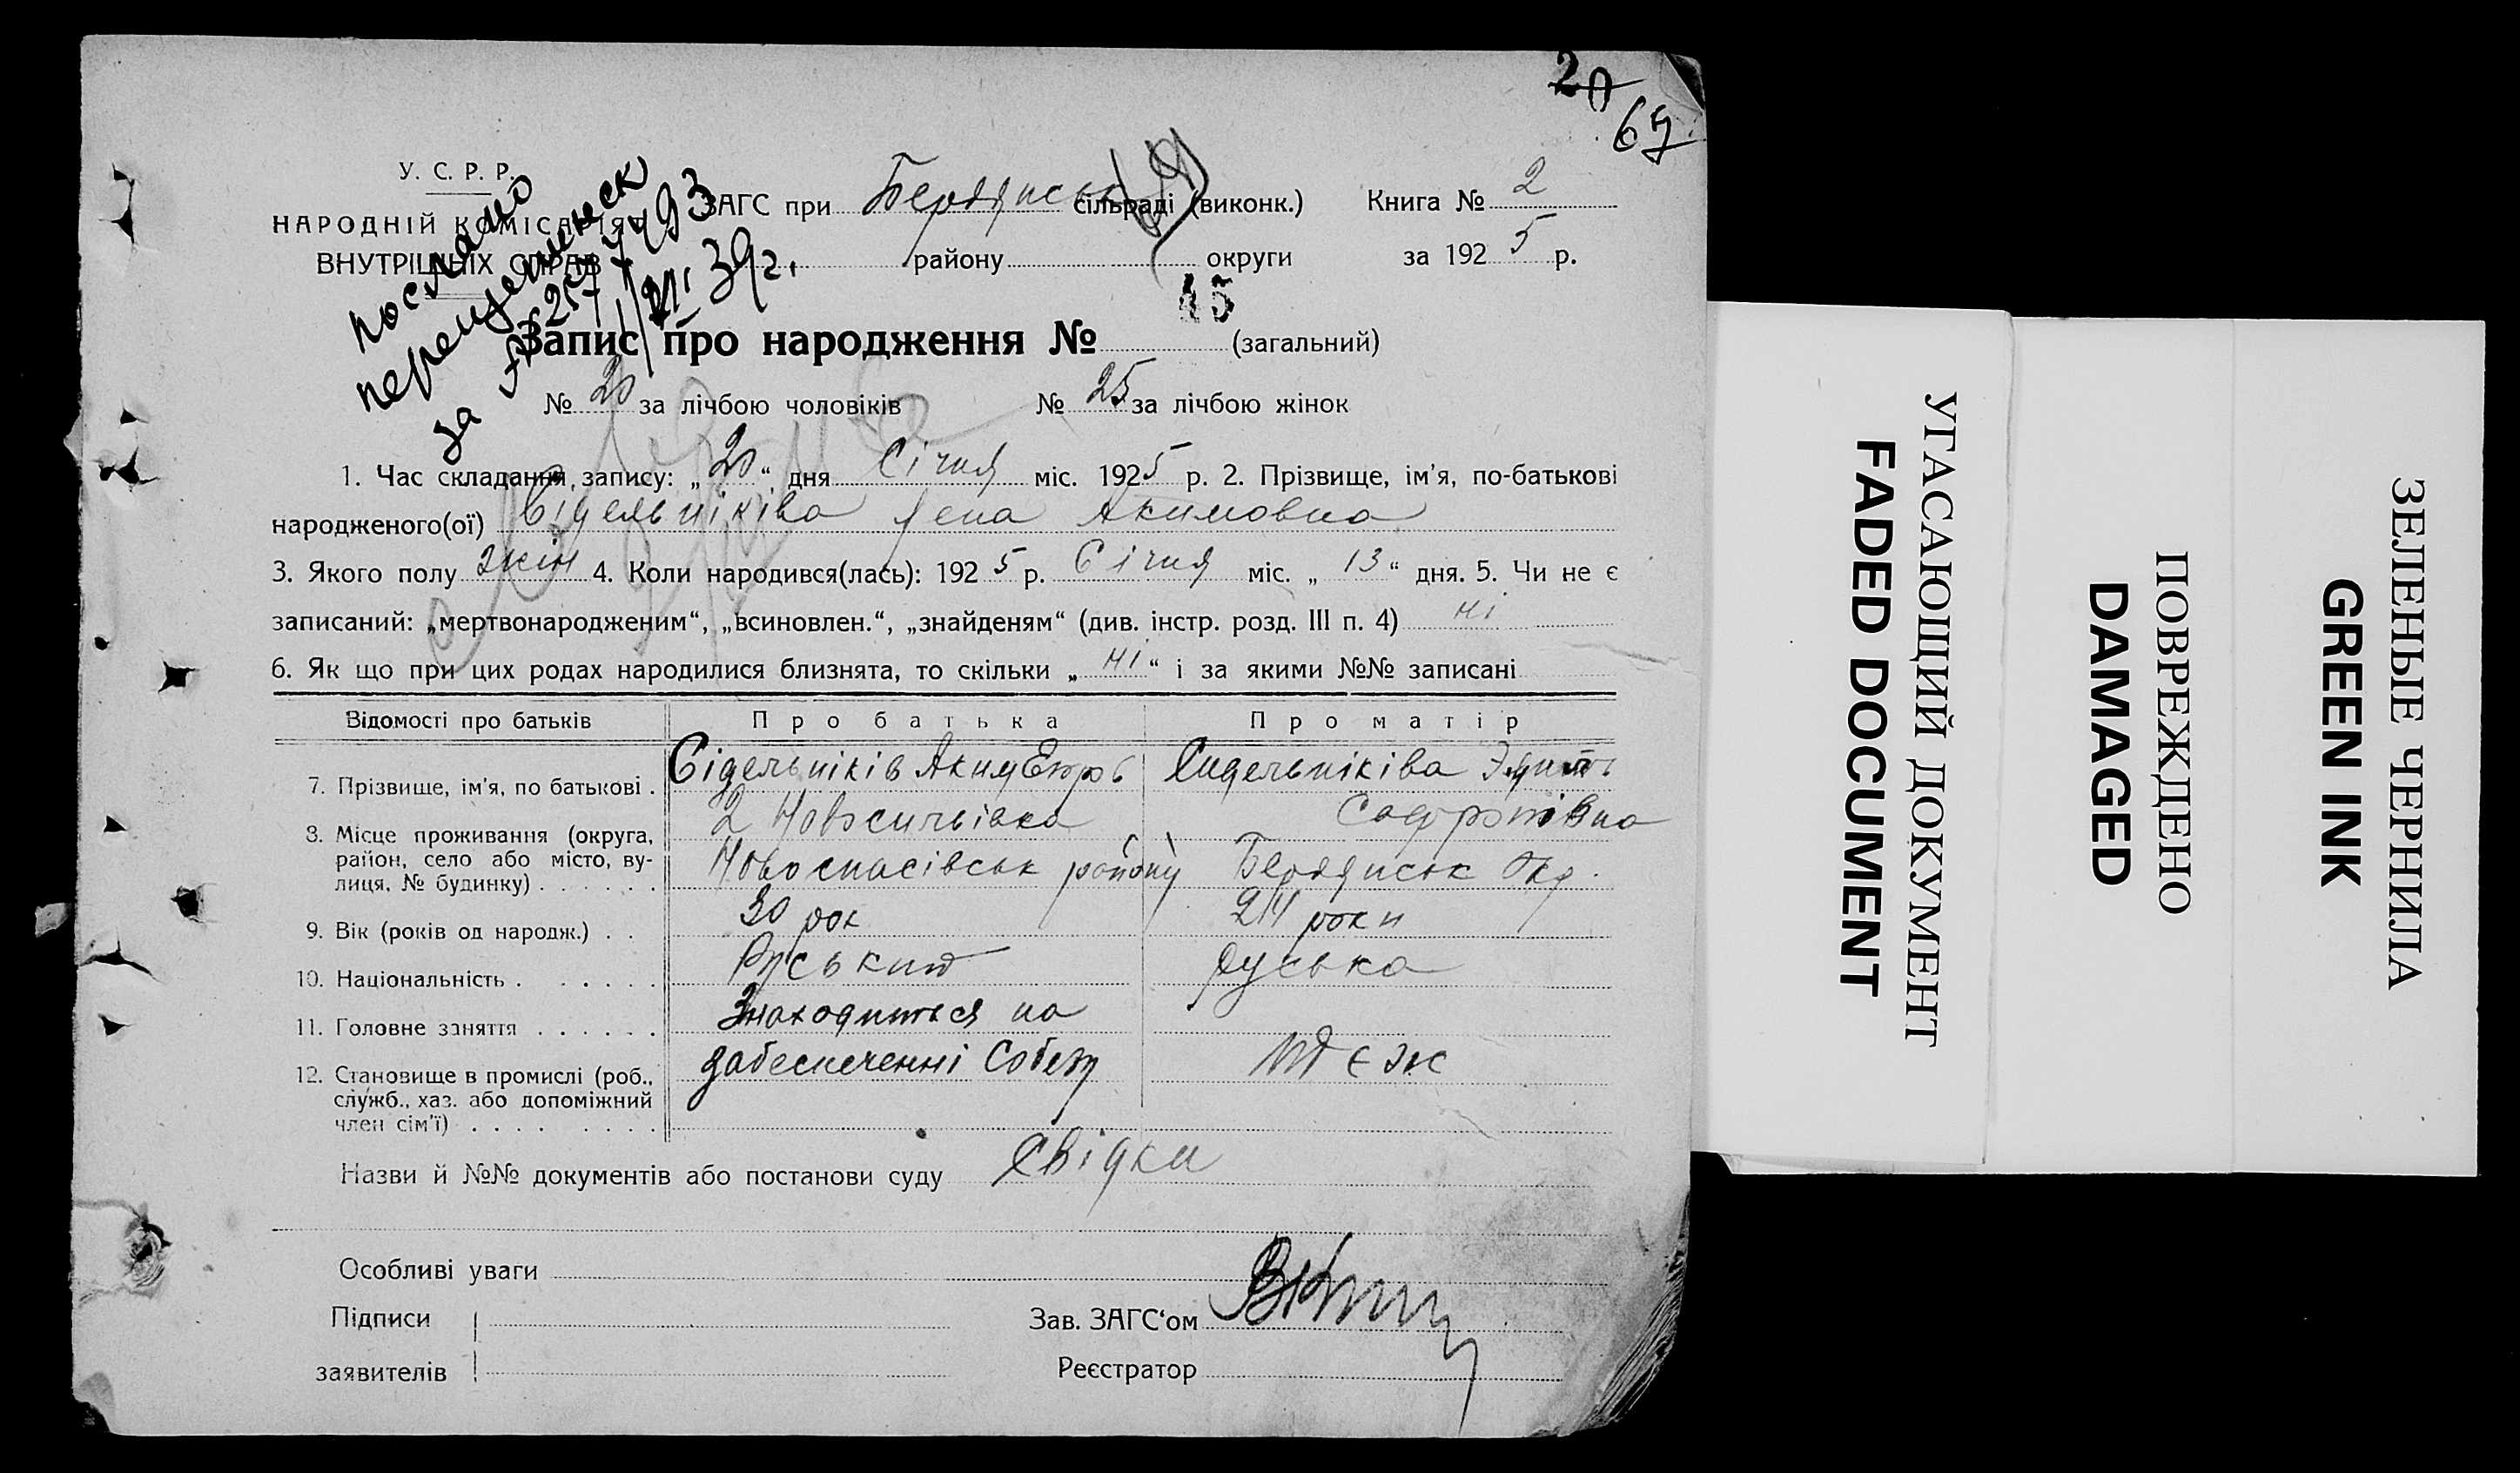 20
67
У. С. Р. Р.
НАРОДНІЙ КОМІСАРІЯТ
ВНУТРІШНІХ СПРАВ
послано
за № 257
39 г.
ЗАГС при Бердянськ сільраді (виконк.) Книга № 2
району округи за 1925 р.
Запис про народження № 45 (загальний)
№ 20 за лічбою чоловіків № 25 за лічбою жінок
1. Час складання запису: „20“ дня Січня міс. 1925 р. 2. Прізвище, ім'я, по-батькові
народженого(ої) Сідельніківа Лена Акимовна
3. Якого полу жін 4. Коли народився(лась): 1925 р. Січня міс. „13“ дня. 5. Чи не є
записаний: „мертвонародженим“, „всиновлен.“, „знайденям“ (див. інстр. розд. III п. 4) ні
6. Як що при цих родах народилися близнята, то скільки „ні“ і за якими №№ записані
Відомості про батьків Про батька Про матір
7. Прізвище, ім'я, по батькові . Сідельніків Аким Сидельніківа
8. Місце проживання (округа, район, село або місто, вулиця, № будинку) . . . . . . Новоспасівськ району Бердянськ Окр.
9. Вік (років од народж.) . . 30 рок 24 роки
10. Національність . . . . . . Руський руська
11. Головне заняття . . . . . . Знаходиться на
забеспеченні Собезу
12. Становище в промислі (роб., служб., хаз. або допоміжний член сім'ї) . . . . . . . .
Назви й №№ документів або постанови суду Свідки
Особливі уваги
Підписи
заявителів
Зав. ЗАГС'ом
Реєстратор
УГАСАЮЩИЙ ДОКУМЕНТ
FADED DOCUMENT
ПОВРЕЖДЕНО
DAMAGED
ЗЕЛЕНЫЕ ЧЕРНИЛА
GREEN INK